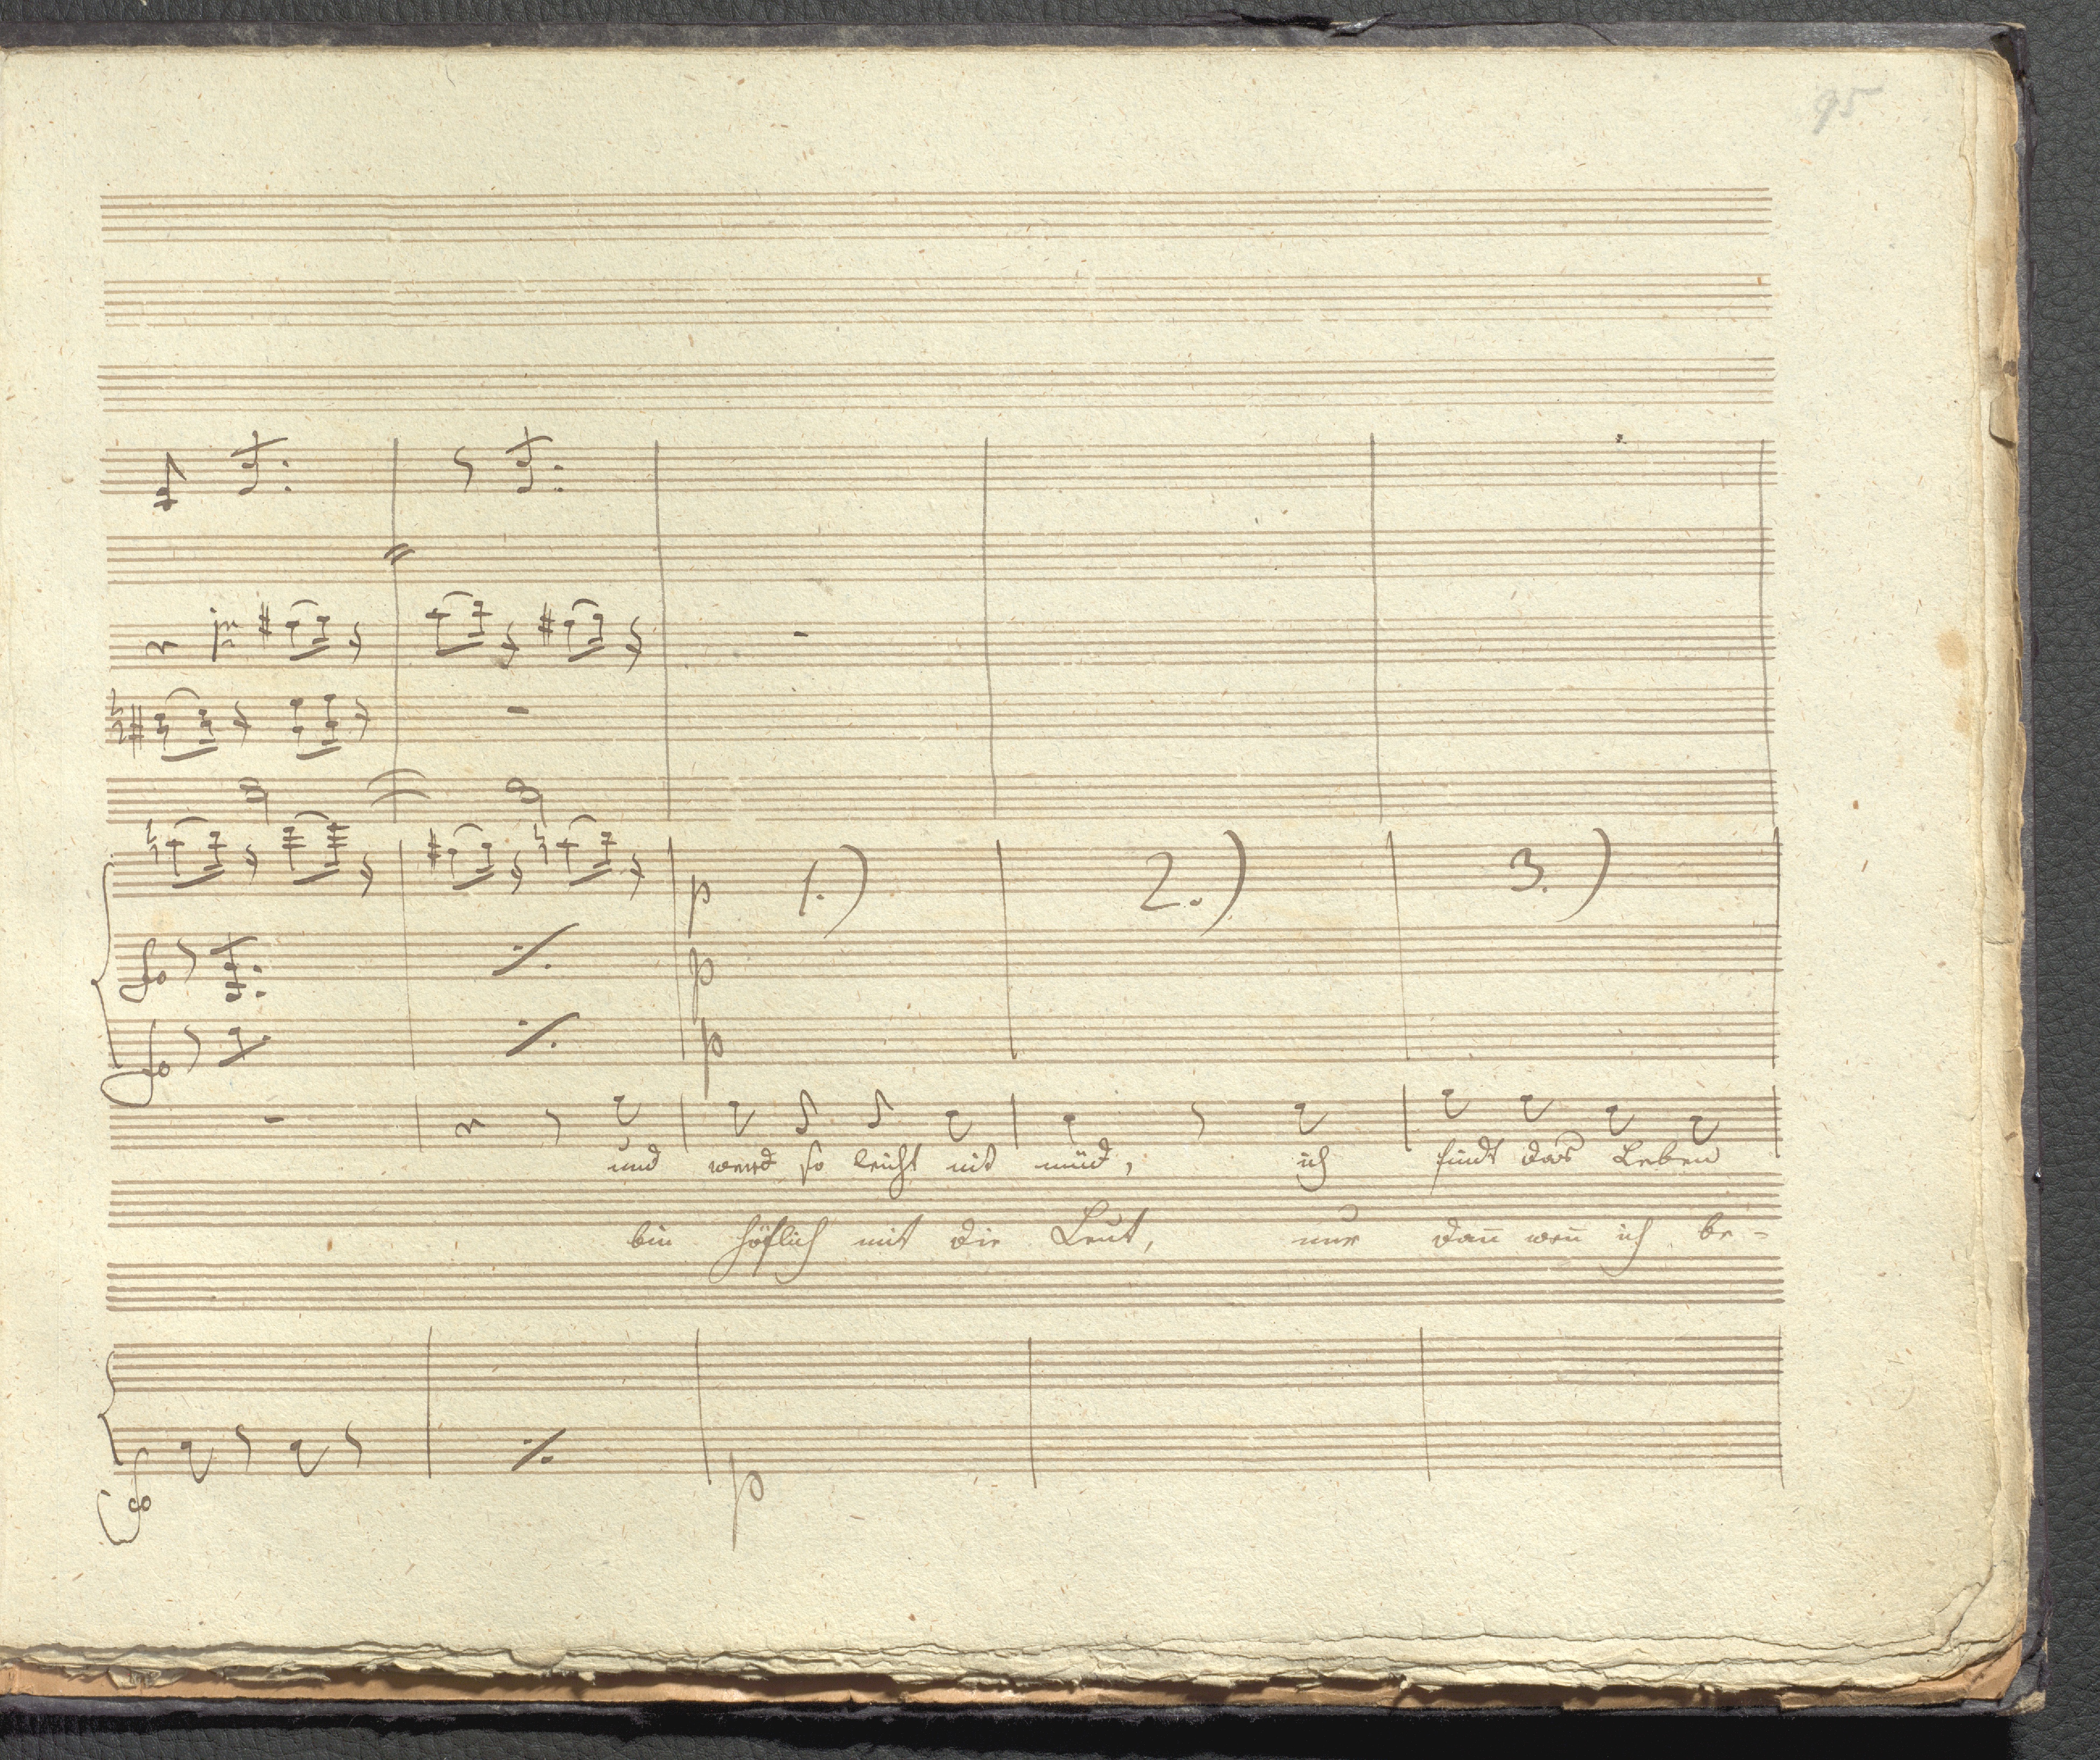 95
1.) 2.) 3.)
fo p
fo p
p
und werd so leicht nit müd, ich findt das Leben
bin höflich mit die Leut, nur dan̄ wen̄ ich be-
fo p